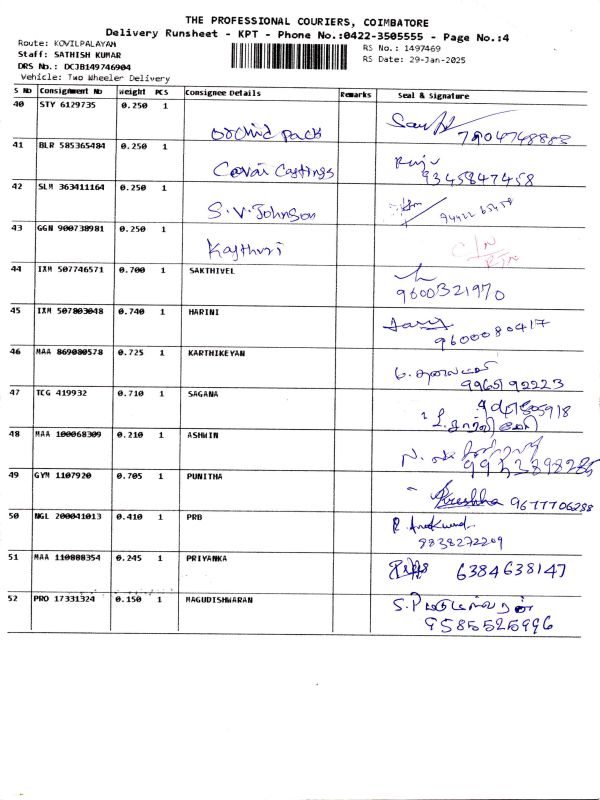 THE PROFESSIONAL COURIERS, COIMBATORE
Delivery Runsheet - KPT - Phone No.:0422-3505555 - Page No.:4
Route: KOVILPALAYAM
Staff: SATHISH KUMAR
DRS No.: DCJB149746904
Vehicle: Two Wheeler Delivery
RS No.: 1497469
RS Date: 29-Jan-2025
S No Consignment No Weight PCS Consignee Details Remarks Seal & Signature
40 STY 6129735 0.250 1
orchid pack 7904748888
41 BLR 585365484 0.250 1
Covai Castings Raju
9345847458
42 SLM 363411164 0.250 1
S.V. Johnson
43 GGN 900738981 0.250 1
Kasthuri
44 IXM 507746571 0.700 1 SAKTHIVEL
9600321970
45 IXM 507803048 0.740 1 HARINI
9600080417
46 MAA 869080578 0.725 1 KARTHIKEYAN
9965192223
47 TCG 419932 0.710 1 SAGANA
48 MAA 100068309 0.210 1 ASHWIN
49 GYM 1107920 0.705 1 PUNITHA
9677706288
50 NGL 200041013 0.410 1 PRB
9838272209
51 MAA 110888354 0.245 1 PRIYANKA
6384638147
52 PRO 17331324 0.150 1 MAGUDISHWARAN
9585525996